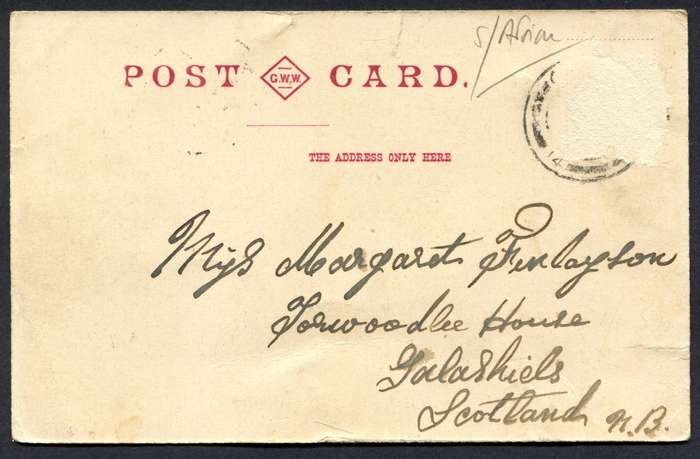 S/African
POST G.W.W. CARD.
THE ADDRESS ONLY HERE
14
Miss Margaret Finlayson
Torwoodlee House
Galashiels
Scotland N.B.